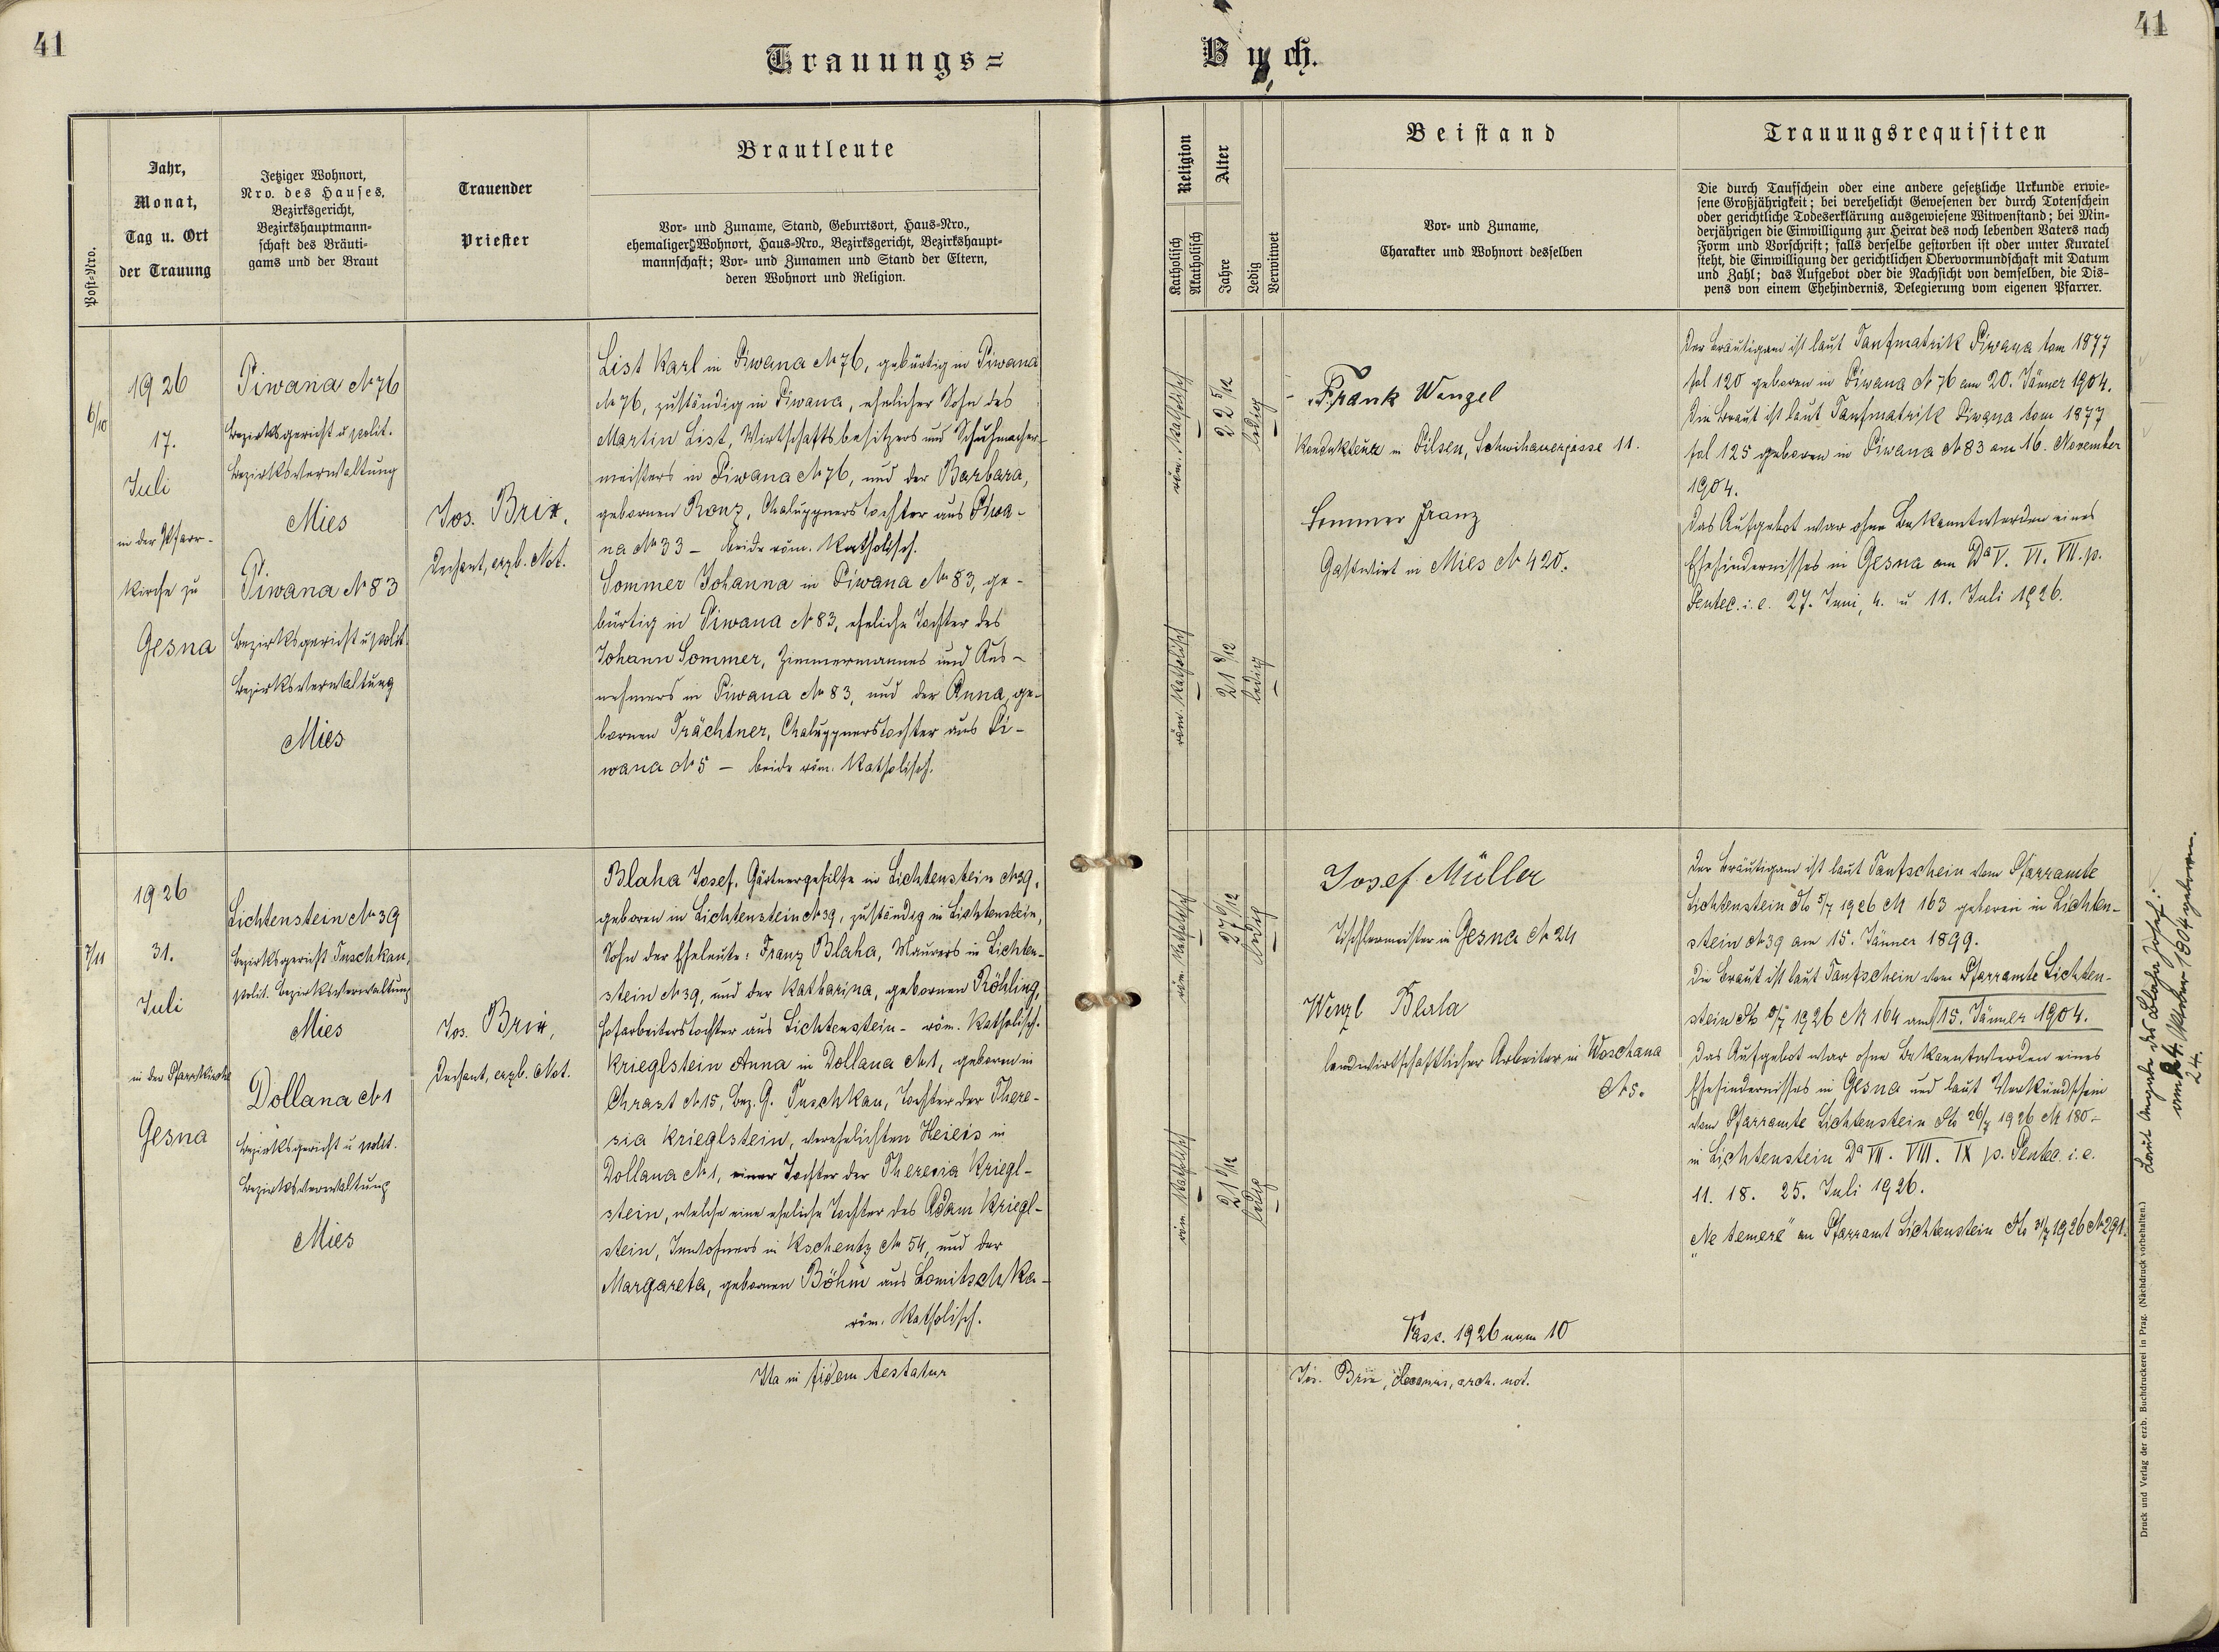 41
41
Trauungs=
Buch.
Post-Nro.
Jahr,
Monat,
Tag u. Ort
der Trauung
Jetziger Wohnort,
Nro. des Hauses,
Bezirksgericht,
Bezirkshauptmann-
schaft des Bräuti-
gams und der Braut
Trauender
Priester
Brautleute
Vor- und Zuname, Stand, Geburtsort, Haus-Nro.,
ehemaliger Wohnort, Haus-Nro., Bezirksgericht, Bezirkshaupt-
mannschaft; Vor- und Zunamen und Stand der Eltern,
deren Wohnort und Religion.
Religion
Katholisch
Akatholisch
Alter
Jahre
Ledig
Verwitwet
Beistand
Vor- und Zuname,
Charakter und Wohnort desselben
Trauungsrequisiten
Die durch Taufschein oder eine andere gesetzliche Urkunde erwie-
sene Großjährigkeit; bei verehelicht Gewesenen der durch Totenschein
oder gerichtliche Todeserklärung ausgewiesene Witwenstand; bei Min-
derjährigen die Einwilligung zur Heirat des noch lebenden Vaters nach
Form und Vorschrift; falls derselbe gestorben ist oder unter Kuratel
steht, die Einwilligung der gerichtlichen Obervormundschaft mit Datum
und Zahl; das Aufgebot oder die Nachsicht von demselben, die Dis-
pens von einem Ehehindernis, Delegierung vom eigenen Pfarrer.
6/10
1926
17.
Juli
in der Pfarr-
kirche zu
Gesna
Piwana № 76
Bezirksgericht u polit.
Bezirksverwaltung
Mies
Piwana № 83
Bezirksgericht u polit.
Bezirksverwaltung
Mies
Jos. Brix,
Dechant, erzb. Not.
List Karl in Piwana № 76, gebürtig in Piwana
№ 76, zuständig in Piwana, ehelicher Sohn des
Martin List, Wirtschaftsbesitzers und Schuhmacher-
meisters in Piwana № 76, und der Barbara,
gebornen Ronz, Chaluppnerstochter aus Piwa-
na № 33 – beide röm. katholisch.
Sommer Johanna in Piwana № 83, ge-
bürtig in Piwana № 83, eheliche Tochter des
Johann Sommer, Zimmermannes und Aus-
nehmers in Piwana № 83, und der Anna, ge-
bornen Trächtner, Chaluppnerstochter aus Pi-
wana № 5 – beide röm. katholisch.
röm. katholisch
22 5/12
ledig
röm. katholisch
21 8/12
ledig
Frank Wenzel
Kondukteur in Pilsen, Schwihauergasse 11.
Sommer Franz
Gastwirt in Mies № 420.
Der Bräutigam ist laut Taufmatrik Piwana tom 1877
fol 120 geboren in Piwana № 76 am 20. Jänner 1904.
Die Braut ist laut Taufmatrik Piwana tom 1877
fol 125 geboren in Piwana № 83 am 16. November
1904.
Das Aufgebot war ohne Bekanntwerden eines
Ehehindernisses in Gesna am Dª V. VI. VII. p.
Pentec. i. e. 27. Juni, 4. u 11. Juli 1926.
7/11
1926
31.
Juli
in der Pfarrkirche
Gesna
Lichtenstein № 39
Bezirksgericht Tuschkau,
polit. Bezirksverwaltung
Mies
Dollana № 1
Bezirksgericht u polit.
Bezirksverwaltung
Mies
Jos. Brix,
Dechant, erzb. Not.
Blaha Josef, Gärtnergehilfe in Lichtenstein № 39,
geboren in Lichtenstein № 39, zuständig in Lichtenstein,
Sohn der Eheleute: Franz Blaha, Maurers in Lichten-
stein № 39, und der Katharina, gebornen Röhling,
Hofarbeiterstochter aus Lichtenstein – röm. katholisch.
Krieglstein Anna in Dollana № 1, geboren in
Chrast № 15, Bez. G. Tuschkau, Tochter der There-
sia Krieglstein, verehelichten Heieis in
Dollana № 1, einer Tochter der Theresia Kriegl-
stein, welche eine eheliche Tochter des Adam Kriegl-
stein, Inwohners in Kschentz № 54, und der
Margareta, gebornen Böhm aus Lomitschka –
röm. katholisch.
röm. katholisch
27 6/12
ledig
röm. katholisch
21 6/12
ledig
Josef Müller
Tischlermeister in Gesna № 24
Wenzl Blaha
landwirtschaftlicher Arbeiter in Woschana
№ 5.
Fasc. 1926 num 10
Der Bräutigam ist laut Taufschein vom Pfarramte
Lichtenstein dto 5/7 1926 № 163 geboren in Lichten-
stein № 39 am 15. Jänner 1899.
Die Braut ist laut Taufschein vom Pfarramte Lichten-
stein dto 5/7 1926 № 164 am 15. Jänner 1904.
Das Aufgebot war ohne Bekanntwerden eines
Ehehindernisses in Gesna und laut Verkündschein
vom Pfarramte Lichtenstein dto 26/7 1926 № 180 –
in Lichtenstein Dª VII. VIII. IX p. Pentec. i. e.
11. 18. 25. Juli 1926.
„Ne temere" an Pfarramt Lichtenstein dto 31/7 1926 № 291.
Laut Angabe des Blaha Josef:
am 24. 1904 geboren.
24.
Ita in fidem testatur
Jos. Brix, decanus, arch. not.
Druck und Verlag der erzb. Buchdruckerei in Prag. (Nachdruck vorbehalten.)